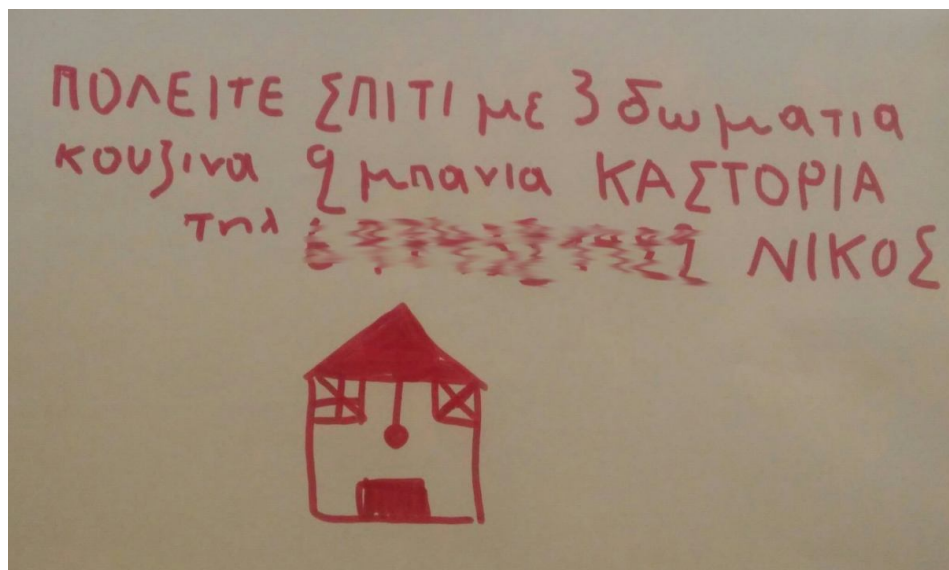 ΠΟΛΕΙΤΕ ΣΠΙΤΙ με 3 δωματια
κουζινα 2 μπανια ΚΑΣΤΟΡΙΑ
τηλ ΝΙΚΟΣ